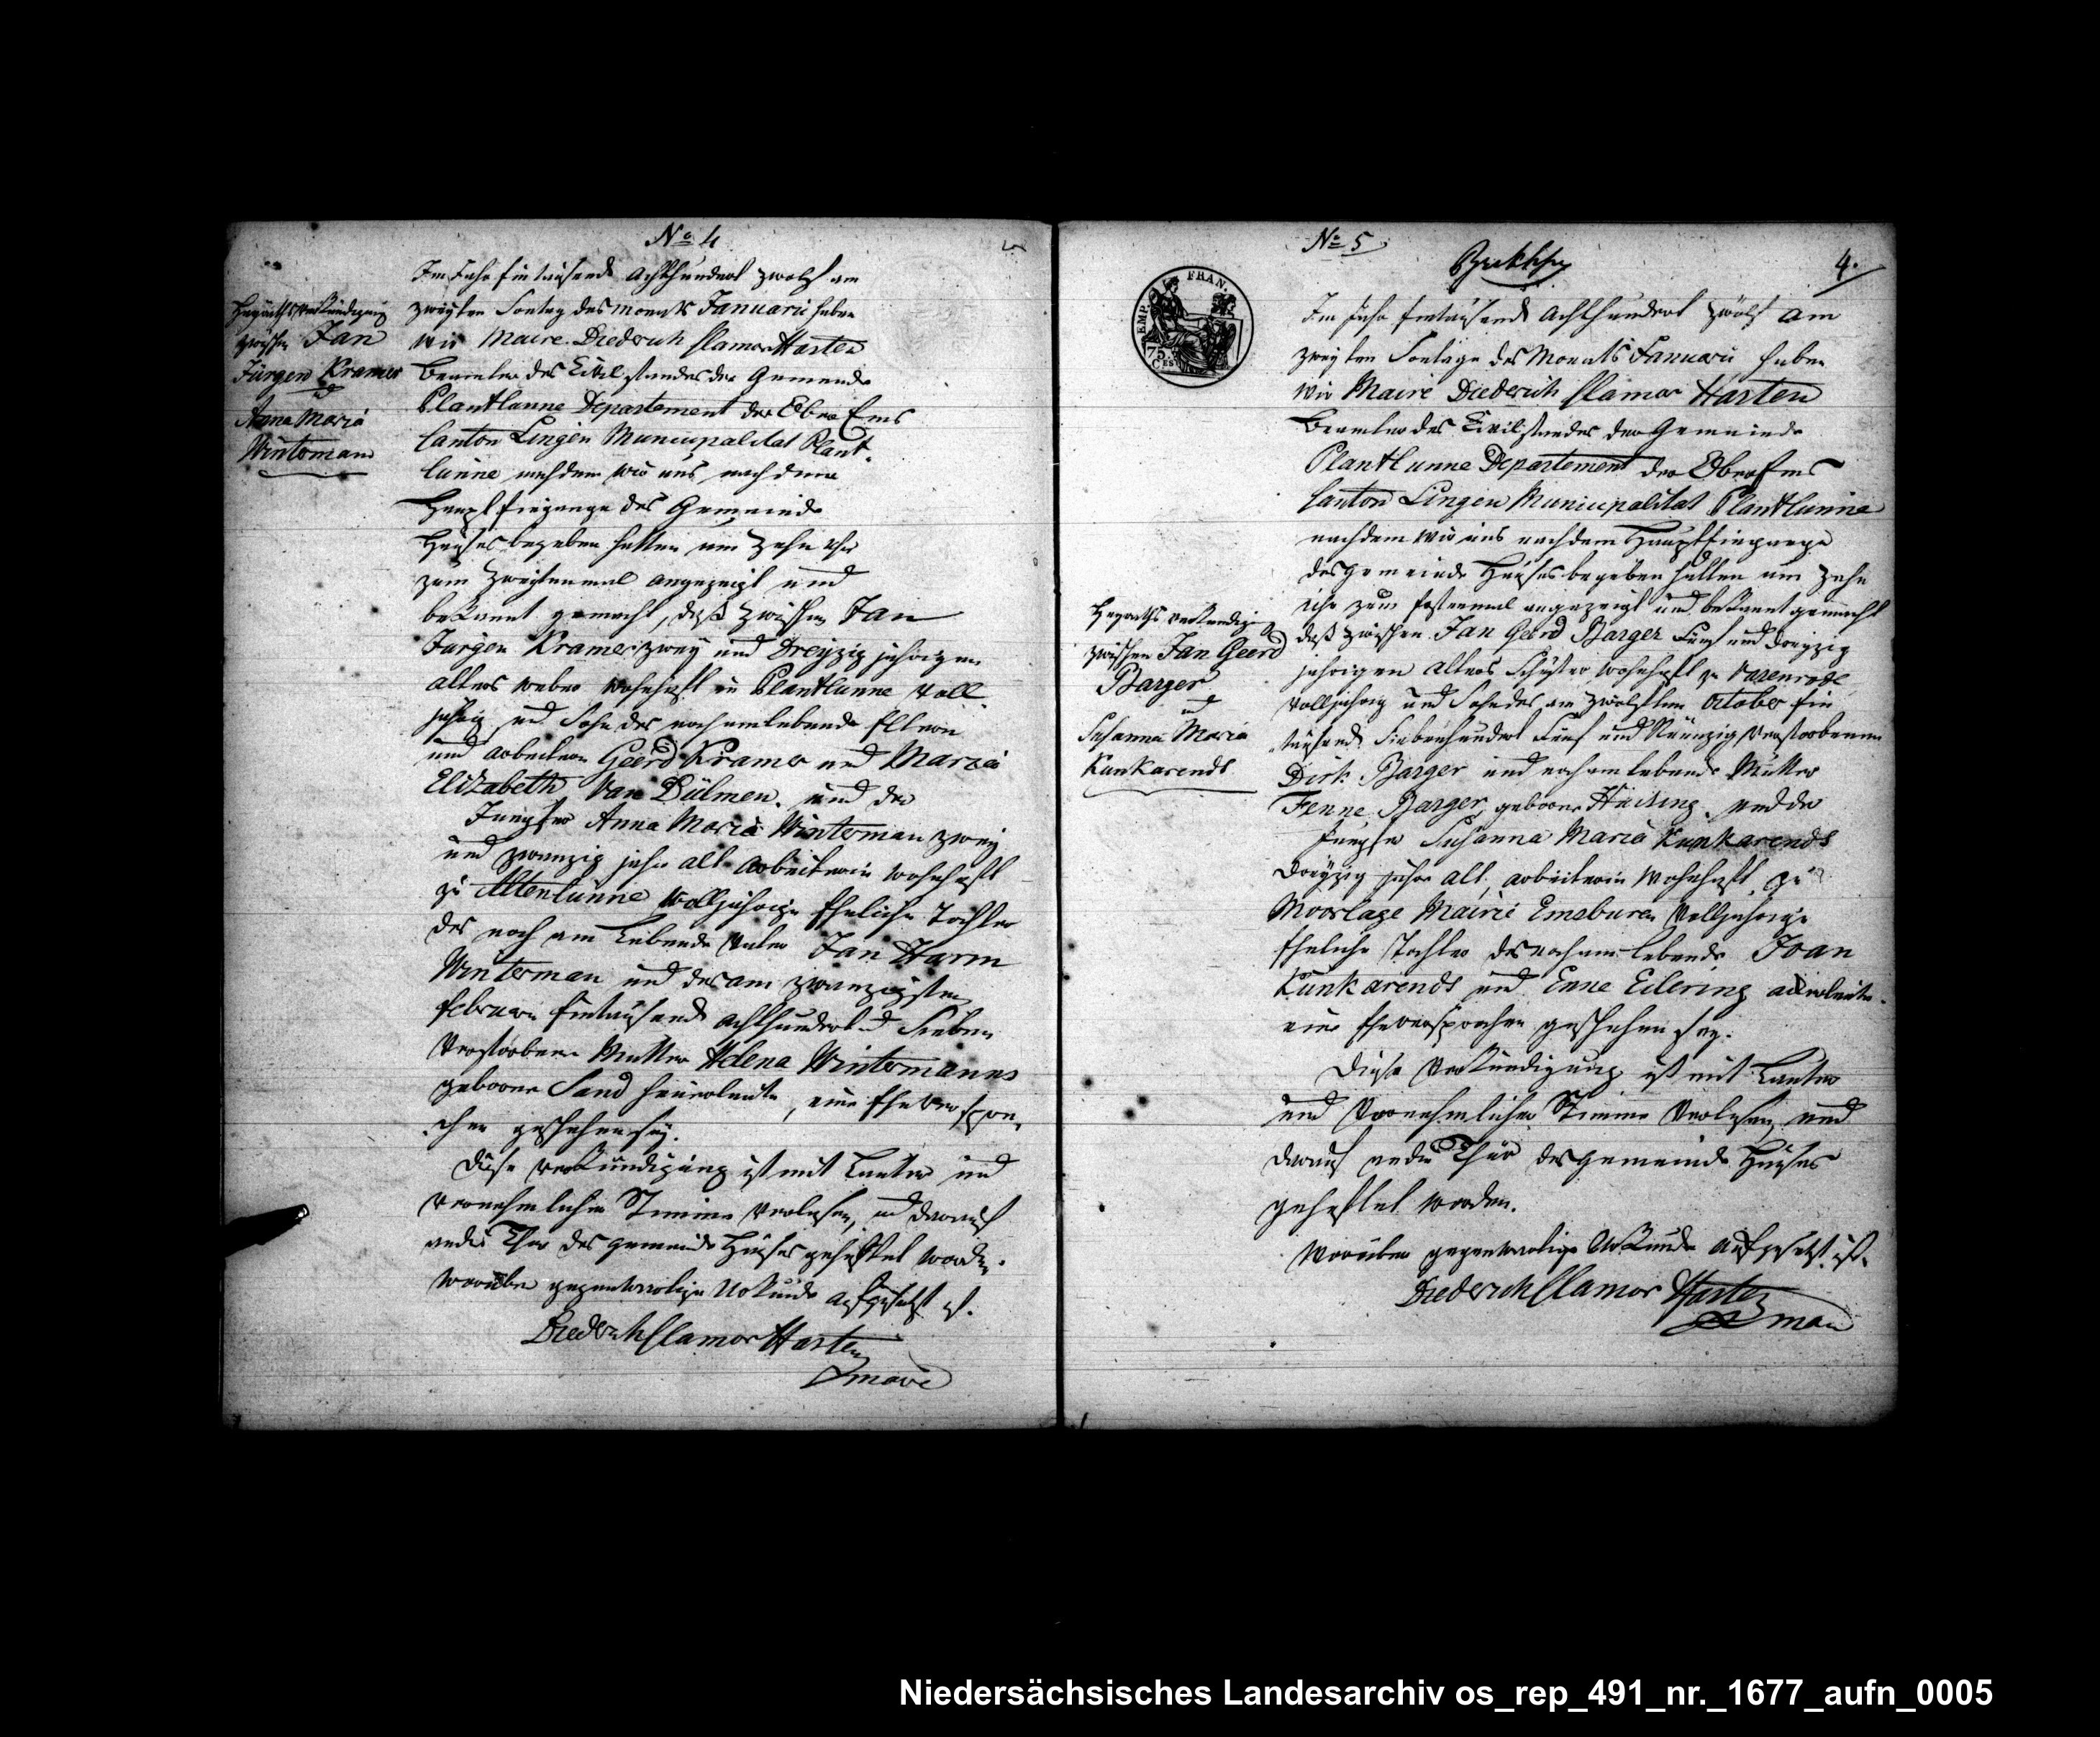 No 4
Heyrathsverkündigung
zwischen Jan
Jürgen Kramer
und
Anna Maria
Winterman
Im Jahr Eintausend Achthundert zwölf am
zweyten Sontag des Monats Januarii haben
wir Maire Diederich Clamor Harten
Beamter des Civilstandes der Gemeinde
Plantlünne Departement der Ober Ems
Canton Lingen Municipalitat Plant-
lünne nachdem wir uns nach dem
Haupt Eingange des Gemeinde
Hauses begeben hatten um zehn Uhr
zum zweytenmal angezeigt und
bekannt gemacht, daß zwischen Jan
Jurgen Kramer zwey und Dreyzig jahrigen
alters weber wohnhaft in Plantlunne voll
jahrig und Sohn der noch am lebende Eltern
und arbeitern Geerd Kramer und Maria
Elizabeth Van Dülmen. und der
Jungfer Anna Maria Winterman zwey
und zwanzig jahr alt arbeiterin wohnhaft
zu Altenlünne volljahrige Eheliche Tochter
des noch am Lebende Vater Jan Harm
Winterman und der am zwanzigsten
februari Eintausend achthundert und Sieben
Verstorbene Mutter Helena Wintermanns
geborne Sand heuerleute, eine Eheverspre-
chen geschehen sey.
Diese verkündigung ist mit Lauter und
vernehmlicher Stimme verlesen, und darauf
an die Thür des gemeinde Hauses geheftet worden.
worüber gegenwartige Urkunde aufgesetzt ist.
Diederich Clamor Harten
maire
No 5
4.
EMP. FRAN.
75 Ces
Heyraths verkundigung
zwischen Jan Geerd
Barger
und
Susanna Maria
Kunkarends
Im Jahr Eintausend Achthundert zwölf am
zweyten Sontage des Monats Januarii haben
wir Maire Diederich Clamor Harten
Beamter des Civilstandes der Gemeinde
Plantlunne Departement der Ober Ems
Canton Lingen Municipalitat Plantlünne
nachdem wir uns nach dem Haupt Eingange
des gemeinde Hauses begeben hatten um zehn
Uhr zum Erstenmal angezeigt und bekannt gemacht
daß zwischen Jan Geerd Barger Fünf und dreyzig
jahrigen alters Schuster wohnhaft zu Varenrode
volljahrig und Sohn des am zwölften October Ein
tausend Siebenhundert Fünf und Neunzig verstorbenen
Dirk Barger und noch am lebende Mutter
Fenne Barger, geborne Huising. und der
Jungfer Susanna Maria Kunkarends
dreyzig jahr alt, arbeiterin wohnhaft zu
Moorlage Mairie Emsburen Volljahrige
Eheliche Tochter der noch am Lebende Joan
Kunkarends und Enne Eilering
eine Eheversprechen geschehen sey.
Diese Verkundigung ist mit Lauter
und Vernehmlicher Stimme Verlesen, und
darauf an die Thür des gemeinde Hauses
geheftet worden.
worüber gegenwartige Urkunde aufgesetzt ist.
Diederich Clamor Harten
maire
Niedersächsisches Landesarchiv os_rep_491_nr._1677_aufn_0005